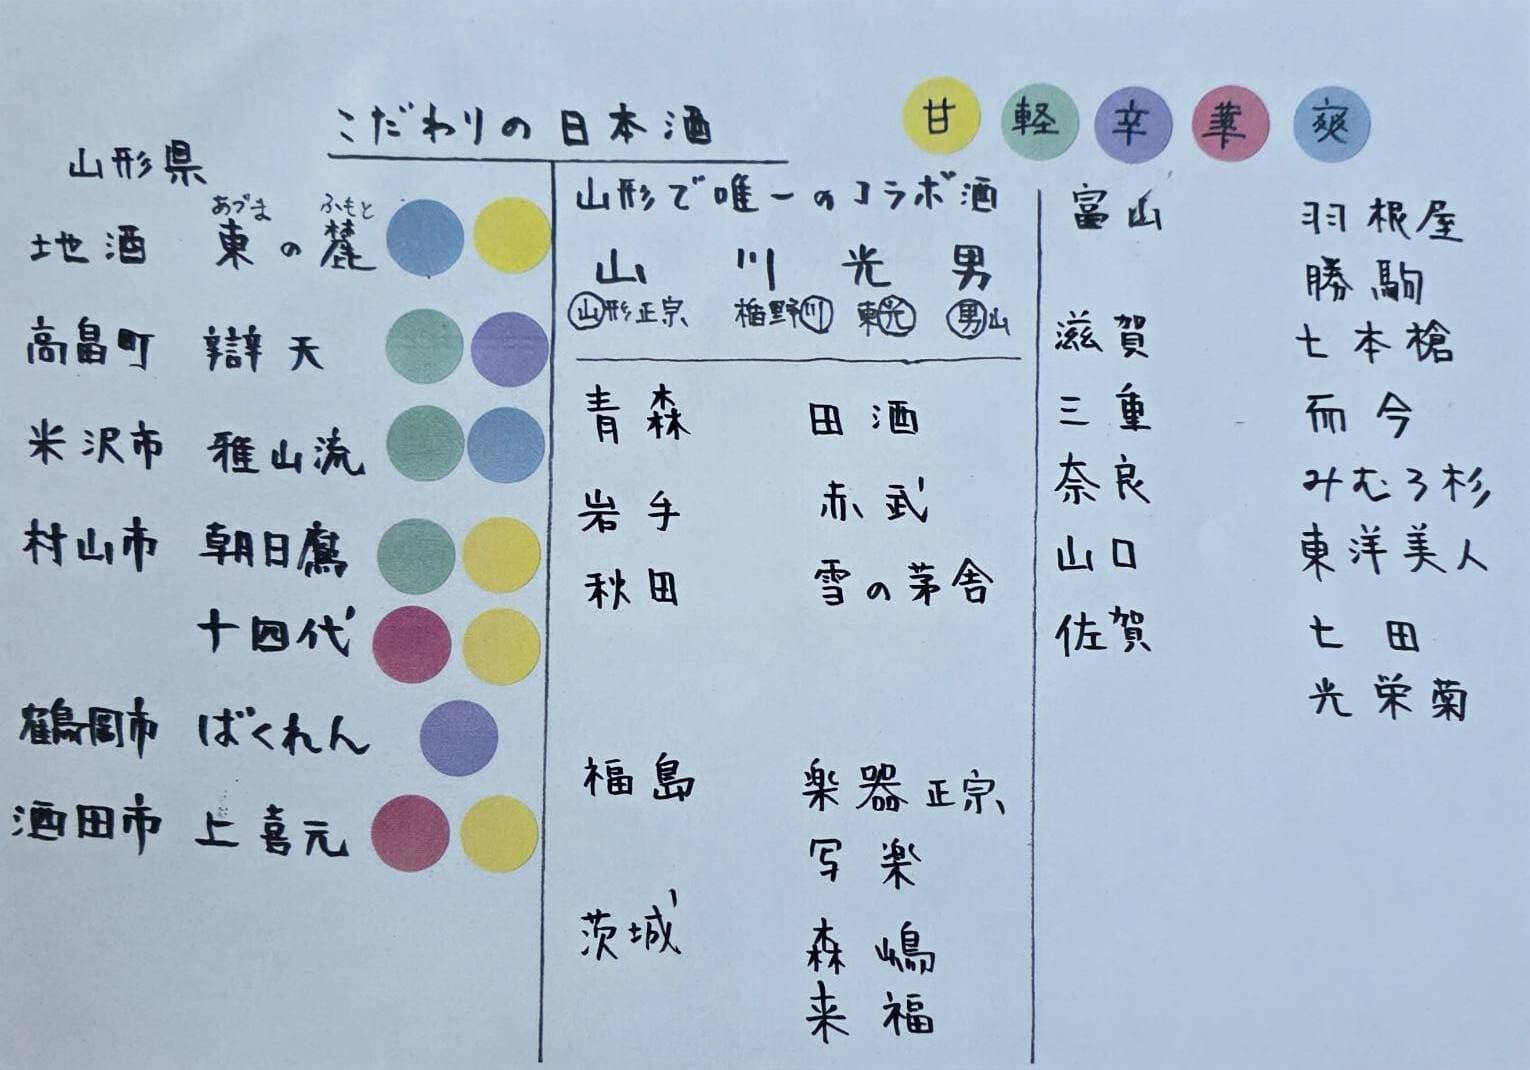 こだわりの日本酒
甘 軽 辛 華 爽
山形県
あづま ふもと
地酒 東の麓
高畠町 辯天
米沢市 雅山流
村山市 朝日鷹
十四代
鶴岡市 ばくれん
酒田市 上喜元
山形で唯一のコラボ酒
山 川 光 男
山形正宗 楯野川 東光 男山
青森 田酒
岩手 赤武
秋田 雪の茅舎
福島 楽器正宗
写楽
茨城 森嶋
来福
富山 羽根屋
勝駒
滋賀 七本槍
三重 而今
奈良 みむろ杉
山口 東洋美人
佐賀 七田
光栄菊